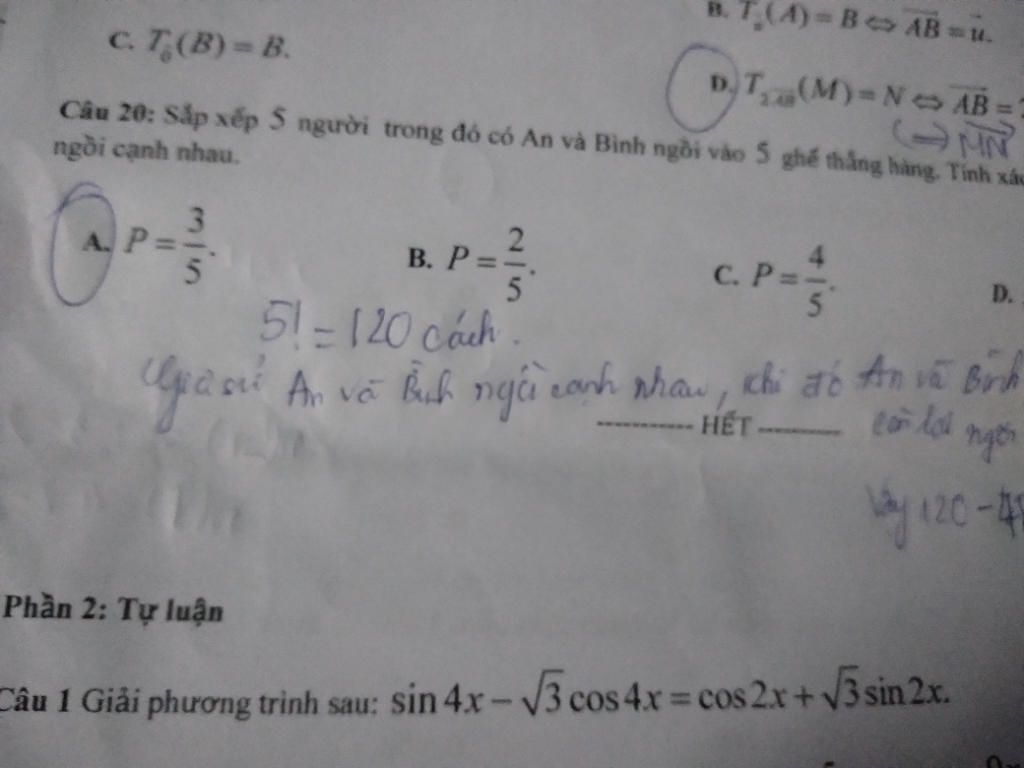 B. T_u(A) = B ⇔ AB = u.
C. T_0(B) = B.
D. T_2AB(M) = N ⇔ AB =
(⇒ MN
Câu 20: Sắp xếp 5 người trong đó có An và Bình ngồi vào 5 ghế thẳng hàng. Tính
ngồi cạnh nhau.
A. P = 3/5. B. P = 2/5. C. P = 4/5. D.
5! = 120 cách.
Giả sử An và Bình ngồi cạnh nhau, khi đó An và Bình
---------- HẾT ----------
còn lại ngồi
Vậy 120 -
Phần 2: Tự luận
Câu 1 Giải phương trình sau: sin 4x − √3 cos 4x = cos 2x + √3 sin 2x.